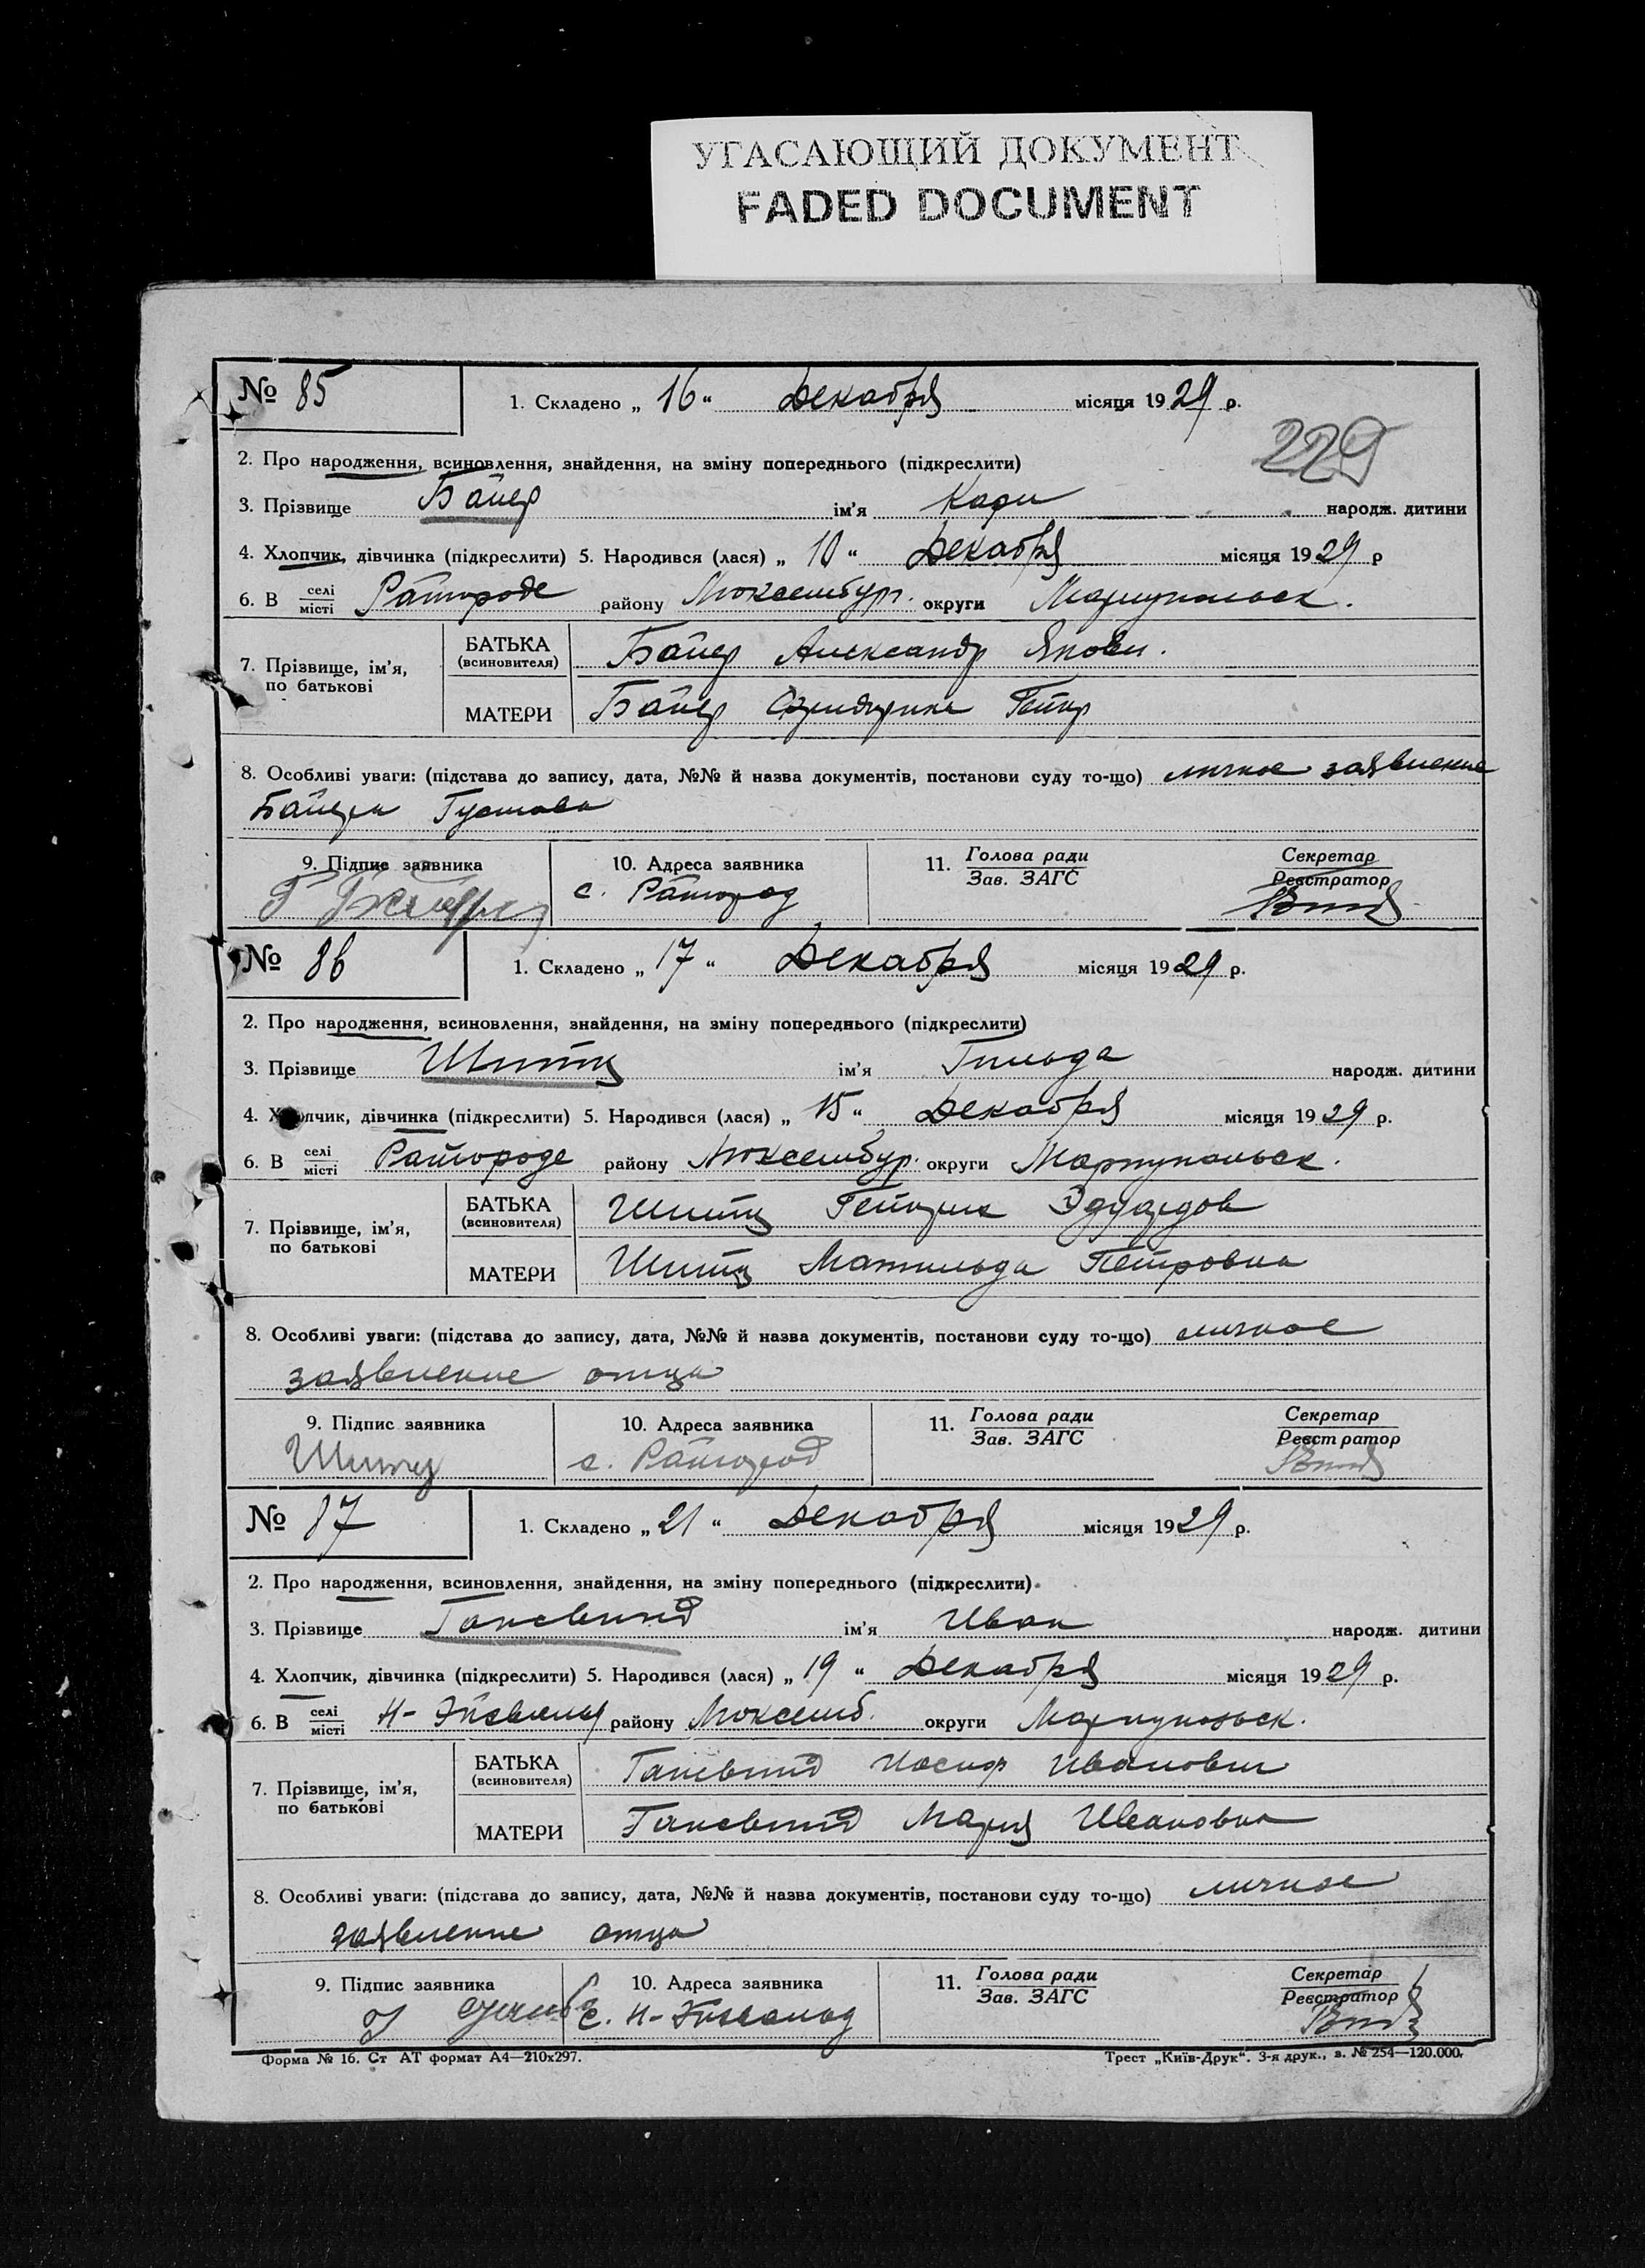 УГАСАЮЩИЙ ДОКУМЕНТ
FADED DOCUMENT
№ 85 1. Складено „ 16 “ Декабря місяця 1929 р.
229
2. Про народження, всиновлення, знайдення, на зміну попереднього (підкреслити)
3. Прізвище Байер ім’я Карл народж. дитини
4. Хлопчик, дівчинка (підкреслити) 5. Народився (лася) „ 10 “ Декабря місяця 1929 р
6. В селі місті Райгороде району Люксембург. округи Мариупольск.
7. Прізвище, ім’я, по батькові
БАТЬКА (всиновителя) Байер Александр Яковл.
МАТЕРИ Байер Фридерика
8. Особливі уваги: (підстава до запису, дата, №№ й назва документів, постанови суду то-що) личное заявление
Байера Густава
9. Підпис заявника 10. Адреса заявника 11. Голова ради Зав. ЗАГС Секретар Реєстратор
с. Райгород
№ 86 1. Складено „ 17 “ Декабря місяця 1929 р.
2. Про народження, всиновлення, знайдення, на зміну попереднього (підкреслити)
3. Прізвище Шитц ім’я Гильда народж. дитини
4. Хлопчик, дівчинка (підкреслити) 5. Народився (лася) „ 15 “ Декабря місяця 1929 р.
6. В селі місті Райгороде району Люксембур. округи Мариупольск.
7. Прізвище, ім’я, по батькові
БАТЬКА (всиновителя) Шитц Гейнрих Эдуардов
МАТЕРИ Шитц Матильда Петровна
8. Особливі уваги: (підстава до запису, дата, №№ й назва документів, постанови суду то-що) личное
заявление отца
9. Підпис заявника 10. Адреса заявника 11. Голова ради Зав. ЗАГС Секретар Реєстратор
Шитц с. Райгород
№ 87 1. Складено „ 21 “ Декабря місяця 1929 р.
2. Про народження, всиновлення, знайдення, на зміну попереднього (підкреслити).
3. Прізвище Гансвинд ім’я Иван народж. дитини
4. Хлопчик, дівчинка (підкреслити) 5. Народився (лася) „ 19 “ Декабря місяця 1929 р.
6. В селі місті району Люксемб. округи Мариупольск.
7. Прізвище, ім’я, по батькові
БАТЬКА (всиновителя) Гансвинд Иосиф Иванович
МАТЕРИ Гансвинд Мария Ивановна
8. Особливі уваги: (підстава до запису, дата, №№ й назва документів, постанови суду то-що) личное
заявление отца
9. Підпис заявника 10. Адреса заявника 11. Голова ради Зав. ЗАГС Секретар Реєстратор
Форма № 16. Ст АТ формат А4—210x297. Трест „Київ-Друк“. 3-я друк., в. № 254—120.000.